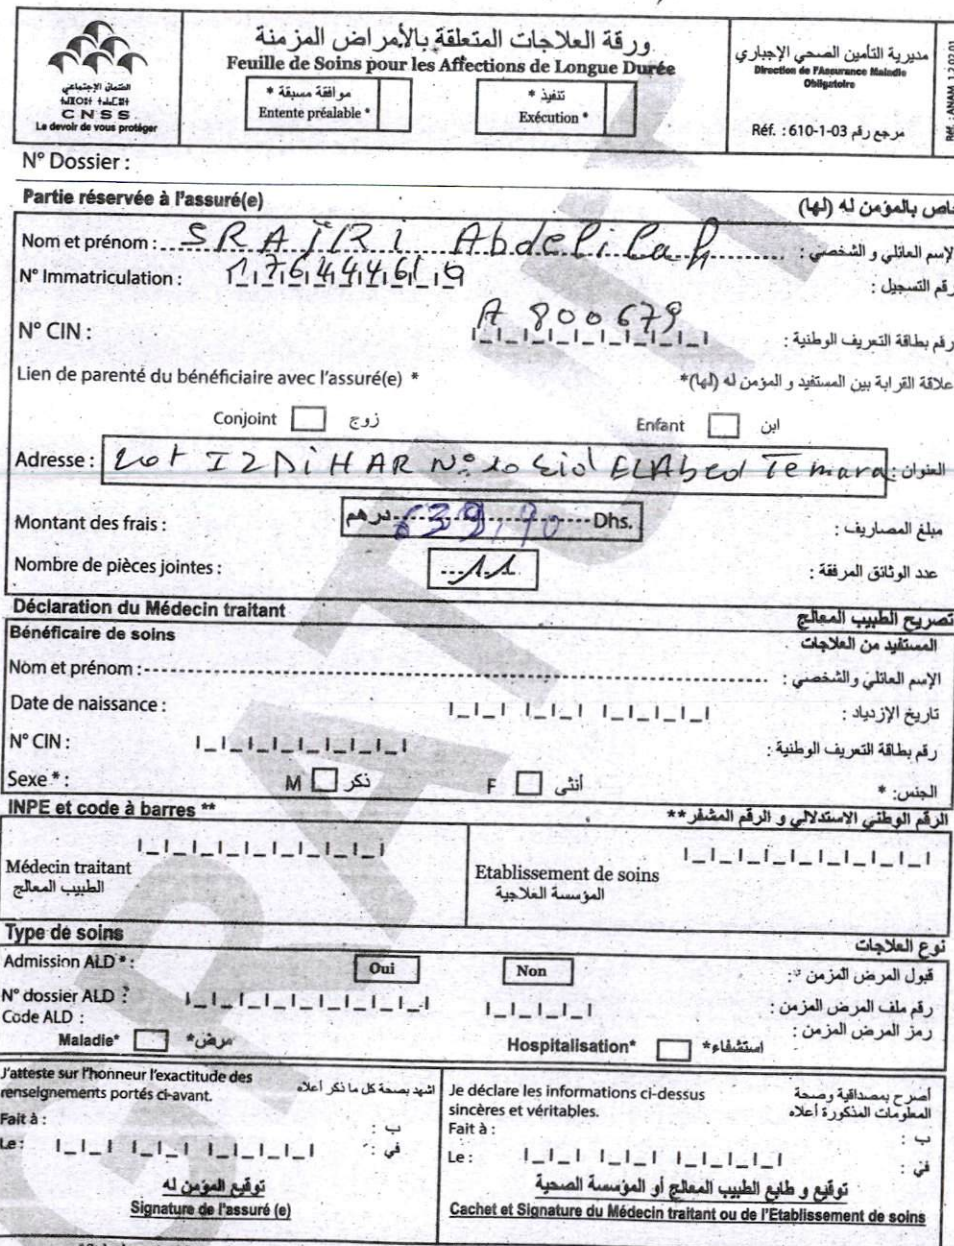 ورقة العلاجات المتعلقة بالأمراض المزمنة
Feuille de Soins pour les Affections de Longue Durée
الضمان الإجتماعي
CNSS
Le devoir de vous protéger
موافقة مسبقة *
Entente préalable *
تنفيذ *
Exécution *
مديرية التأمين الصحي الإجباري
Direction de l'Assurance Maladie
Obligatoire
Réf. : 610-1-03 مرجع رقم
N° Dossier :
Partie réservée à l'assuré(e) خاص بالمؤمن له (لها)
Nom et prénom : SRAÏRI Abdelilah الإسم العائلي و الشخصي :
N° Immatriculation : 176444619 رقم التسجيل :
N° CIN : A 800679 رقم بطاقة التعريف الوطنية :
Lien de parenté du bénéficiaire avec l'assuré(e) * علاقة القرابة بين المستفيد و المؤمن له (لها)*
Conjoint زوج Enfant ابن
Adresse : Lot IZDiHAR N° 10 Sid ELAbed Temara العنوان :
Montant des frais : درهم 639,70 Dhs. مبلغ المصاريف :
Nombre de pièces jointes : 11 عدد الوثائق المرفقة :
Déclaration du Médecin traitant تصريح الطبيب المعالج
Bénéficaire de soins المستفيد من العلاجات
Nom et prénom : الإسم العائلي والشخصي :
Date de naissance : تاريخ الإزدياد :
N° CIN : رقم بطاقة التعريف الوطنية :
Sexe * : M ذكر F أنثى الجنس: *
INPE et code à barres ** الرقم الوطني الاستدلالي و الرقم المشفر**
Médecin traitant
الطبيب المعالج
Etablissement de soins
المؤسسة العلاجية
Type de soins نوع العلاجات
Admission ALD * : Oui Non قبول المرض المزمن * :
N° dossier ALD : رقم ملف المرض المزمن :
Code ALD : رمز المرض المزمن :
Maladie* مرض* Hospitalisation* استشفاء*
J'atteste sur l'honneur l'exactitude des
renseignements portés ci-avant.
اشهد بصحة كل ما ذكر أعلاه
Fait à : ب :
Le : في :
توقيع المؤمن له
Signature de l'assuré (e)
Je déclare les informations ci-dessus
sincères et véritables.
أصرح بمصداقية وصحة
المعلومات المذكورة أعلاه
Fait à : ب :
Le : في :
توقيع و طابع الطبيب المعالج أو المؤسسة الصحية
Cachet et Signature du Médecin traitant ou de l'Etablissement de soins
GRATUIT